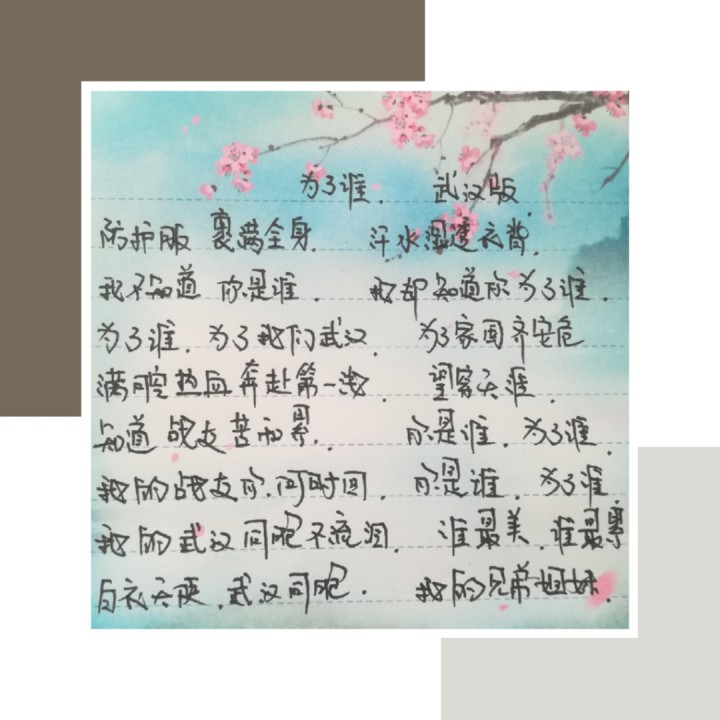 为了谁. 武汉版.
防护服 裹满全身. 汗水湿透衣背.
我不知道 你是谁. 我却知道你为了谁.
为了谁. 为了我们武汉. 为了家国齐安危
满腔热血奔赴第一线. 望穿天涯.
知道 战友苦和累. 你是谁. 为了谁.
我的战友你何时回. 你是谁. 为了谁
我的武汉同胞不流泪. 谁最美. 谁最
白衣天使. 武汉同胞. 我的兄弟姐妹.